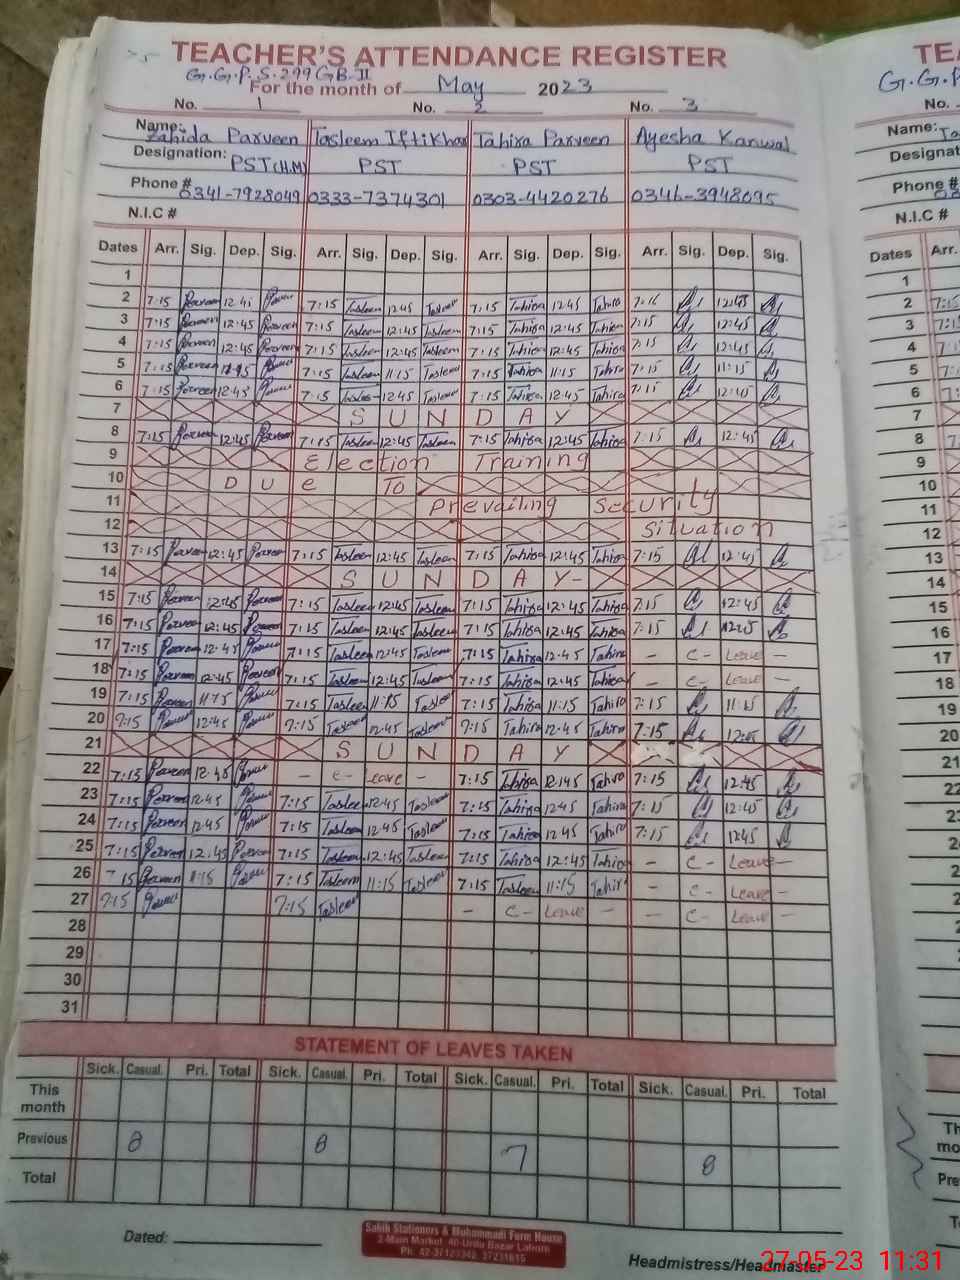 TEACHER'S ATTENDANCE REGISTER
G.G.P.S.299 GB II
For the month of May 2023
No. 1 No. 2 No. 3
Name: Zahida Parveen Tasleem Iftikhar Tahira Parveen Ayesha Kanwal
Designation: PST (H.M) PST PST PST
Phone # 0341-7928049 0333-7374301 0303-4420276 0346-3948695
N.I.C #
Dates Arr. Sig. Dep. Sig. Arr. Sig. Dep. Sig. Arr. Sig. Dep. Sig. Arr. Sig. Dep. Sig.
1
2 7:15 Parveen 12:45 Parveen 7:15 Tasleem 12:45 Tasleem 7:15 Tahira 12:45 Tahira 7:15 12:45
3 7:15 Parveen 12:45 Parveen 7:15 Tasleem 12:45 Tasleem 7:15 Tahira 12:45 Tahira 7:15 12:45
4 7:15 Parveen 12:45 Parveen 7:15 Tasleem 12:45 Tasleem 7:15 Tahira 12:45 Tahira 7:15 12:45
5 7:15 Parveen 7:15 Tasleem 11:15 Tasleem 7:15 Tahira 11:15 Tahira 7:15 11:15
6 7:15 Parveen 12:45 7:15 Tasleem 12:45 Tasleem 7:15 Tahira 12:45 Tahira 7:15 12:45
7 SUNDAY
8 7:15 Parveen 12:45 Parveen 7:15 Tasleem 12:45 Tasleem 7:15 Tahira 12:45 Tahira 7:15 12:45
9 Election Training
10 Due To
11 Prevailing Security
12 Situation
13 7:15 Parveen 12:45 Parveen 7:15 Tasleem 12:45 Tasleem 7:15 Tahira 12:45 Tahira 7:15 12:45
14 SUNDAY-
15 7:15 Parveen 12:45 Parveen 7:15 Tasleem 12:45 Tasleem 7:15 Tahira 12:45 Tahira 7:15 12:45
16 7:15 Parveen 12:45 Parveen 7:15 Tasleem 12:45 Tasleem 7:15 Tahira 12:45 Tahira 7:15 12:45
17 7:15 Parveen 12:45 7:15 Tasleem 12:45 Tasleem 7:15 Tahira 12:45 Tahira - C- Leave -
18 7:15 Parveen 12:45 Parveen 7:15 Tasleem 12:45 Tasleem 7:15 Tahira 12:45 Tahira - C- Leave -
19 7:15 Parveen 11:15 7:15 Tasleem 11:15 Tasleem 7:15 Tahira 11:15 Tahira 7:15 11:15
20 7:15 12:45 7:15 Tasleem 12:45 Tasleem 7:15 Tahira 12:45 Tahira 7:15
21 SUNDAY
22 7:15 Parveen 12:45 - C- Leave - 7:15 Tahira 12:45 Tahira 7:15 12:45
23 7:15 Parveen 12:45 7:15 Tasleem 12:45 Tasleem 7:15 Tahira 12:45 Tahira 7:15 12:45
24 7:15 Parveen 12:45 7:15 Tasleem 12:45 Tasleem 7:15 Tahira 12:45 Tahira 7:15 12:45
25 7:15 Parveen 12:45 Parveen 7:15 Tasleem 12:45 Tasleem 7:15 Tahira 12:45 Tahira - C- Leave -
26 7:15 Parveen 11:15 7:15 Tasleem 11:15 Tasleem 7:15 Tasleem 11:15 Tahira - C- Leave -
27 7:15 7:15 Tasleem - C- Leave - - C- Leave -
28
29
30
31
STATEMENT OF LEAVES TAKEN
Sick. Casual. Pri. Total Sick. Casual. Pri. Total Sick. Casual. Pri. Total Sick. Casual. Pri. Total
This month
Previous 8 8 7 8
Total
Dated:
Sahik Stationers & Muhammadi Form House
2-Main Market, 40-Urdu Bazar Lahore
Headmistress/Headmaster
27-05-23 11:31